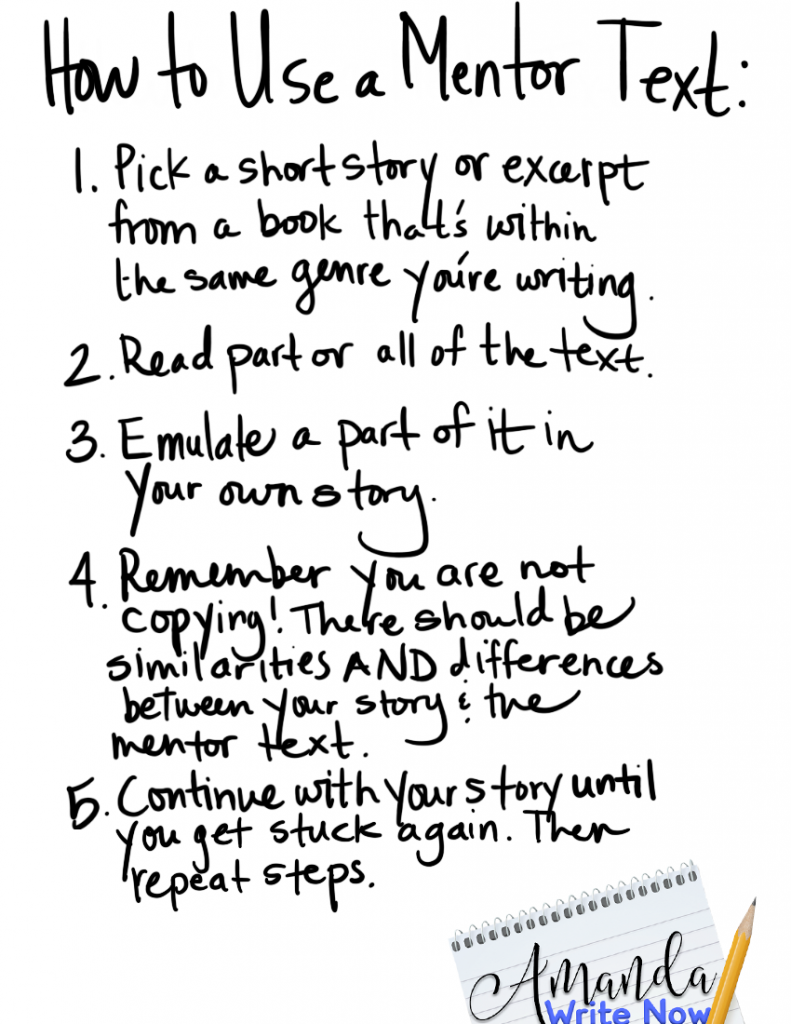 How to Use a Mentor Text:
1. Pick a short story or excerpt
from a book that's within
the same genre you're writing.
2. Read part or all of the text.
3. Emulate a part of it in
your own story.
4. Remember you are not
copying! There should be
similarities AND differences
between your story & the
mentor text.
5. Continue with your story until
you get stuck again. Then
repeat steps.
Amanda
Write Now